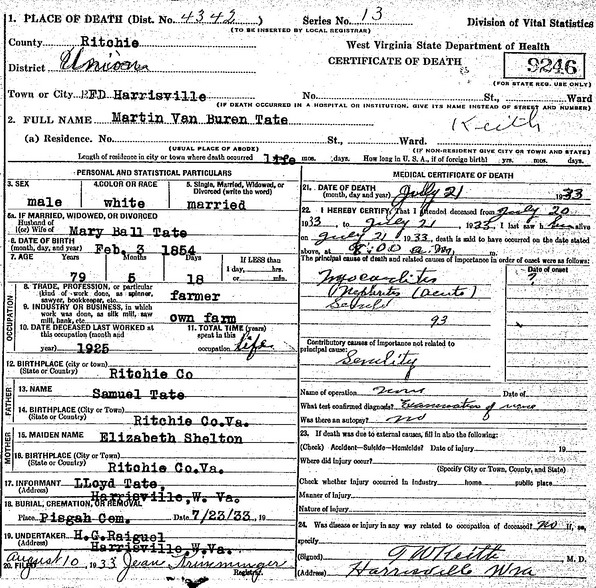 1. PLACE OF DEATH (Dist. No. 4342) Series No. 13 Division of Vital Statistics
(TO BE INSERTED BY LOCAL REGISTRAR)
County Ritchie West Virginia State Department of Health
District Union CERTIFICATE OF DEATH 9246
(FOR STATE REG. USE ONLY)
Town or City RFD Harrisville No. St., Ward
(IF DEATH OCCURRED IN A HOSPITAL OR INSTITUTION, GIVE ITS NAME INSTEAD OF STREET AND NUMBER)
2. FULL NAME Martin Van Buren Tate Keith
(a) Residence. No. St., Ward
(USUAL PLACE OF ABODE) (IF NON-RESIDENT GIVE CITY OR TOWN AND STATE)
Length of residence in city or town where death occurred life mos. days. How long in U. S. A., if of foreign birth? yrs. mos. days.
PERSONAL AND STATISTICAL PARTICULARS
3. SEX
male
4. COLOR OR RACE
white
5. Single, Married, Widowed, or
Divorced (write the word)
married
5a. IF MARRIED, WIDOWED, OR DIVORCED
Husband of
(or) Wife of Mary Ball Tate
6. DATE OF BIRTH
(month, day, and year) Feb, 3 1854
7. AGE Years Months Days IF LESS than
1 day, hrs.
or min.
79 5 18
OCCUPATION
8. TRADE, PROFESSION, or particular
kind of work done, as spinner,
sawyer, bookkeeper, etc. farmer
9. INDUSTRY OR BUSINESS, in which
work was done, as silk mill, saw
mill, bank, etc. own farm
10. DATE DECEASED LAST WORKED at
this occupation (month and
year) 1925
11. TOTAL TIME (years)
spent in this
occupation life
12. BIRTHPLACE (city or town)
(State or Country) Ritchie Co
FATHER
13. NAME Samuel Tate
14. BIRTHPLACE (City or Town)
(State or Country) Ritchie Co.Va.
MOTHER
15. MAIDEN NAME Elizabeth Shelton
16. BIRTHPLACE (City or Town)
(State or Country) Ritchie Co.Va.
17. INFORMANT LLoyd Tate,
(Address) Harrisville, W. Va.
18. BURIAL, CREMATION, OR REMOVAL
Place Pisgah Cem. Date 7/23/33, 19
19. UNDERTAKER H.G.Raiguel
(Address) Harrisville W.Va.
20. FILED August 10, 1933 Jean
Registrar.
MEDICAL CERTIFICATE OF DEATH
21. DATE OF DEATH
(month, day and year) July 21 1933
22. I HEREBY CERTIFY, That I attended deceased from July 20
1933, to July 21, 1933. I last saw him alive
on July 21 1933. death is said to have occurred on the date stated
above, at 8:00 a.m.
The principal cause of death and related causes of importance in order of onset were as follows:
Date of onset
?
Myocarditis
Nephritis (acute)
93
Contributory causes of importance not related to
principal cause:
Senility
Name of operation none
What test confirmed diagnosis? Examination of urine
Was there an autopsy? no
23. IF DEATH was due to external causes, fill in also the following:
(Check) Accident—Suicide—Homicide? Date of injury 19
Where did injury occur?
(Specify City or Town, County, and State)
Check whether injury occurred in Industry home public place
Manner of injury
Nature of injury
24. Was disease or injury in any way related to occupation of deceased? no If, so,
specify
(Signed) Keith M. D.
(Address) Harrisville W Va